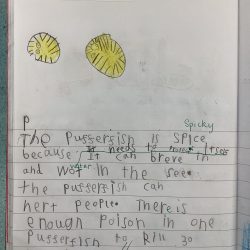 P
Spicky
The Pufferfish is spice
because It needs to itself
It can breve in
water
and wot in the see.
the pufferfish can
hert people. There is
enough Poison in one
Pufferfish to kill 30